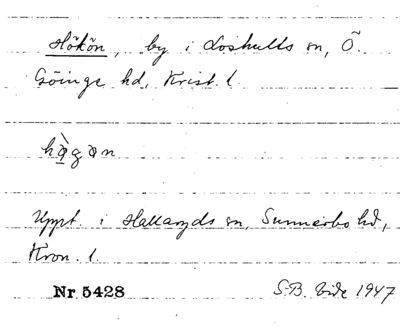 Hökön, by i Loshults sn, Ö.
Göinge hd, Krist. l.
hø̀gøn
Uppt. i Hallaryds sn, Sunnerbo hd,
Kron. l.
Nr 5428 S.B. Vide 1947